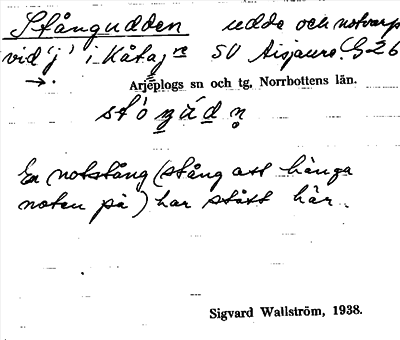 Stångudden udde och notvarp
vid 'j' i Kåtaj:n SV Aisjaure. G-26
→.
Arjeplogs sn och tg, Norrbottens län.
En notstång (stång att hänga
noten på) har stått här.
Sigvard Wallström, 1938.